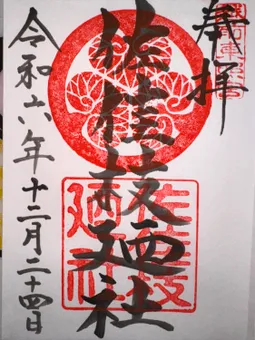 奉拝
佐佳枝廼社
佐佳枝
廼社
令和六年十二月二十四日